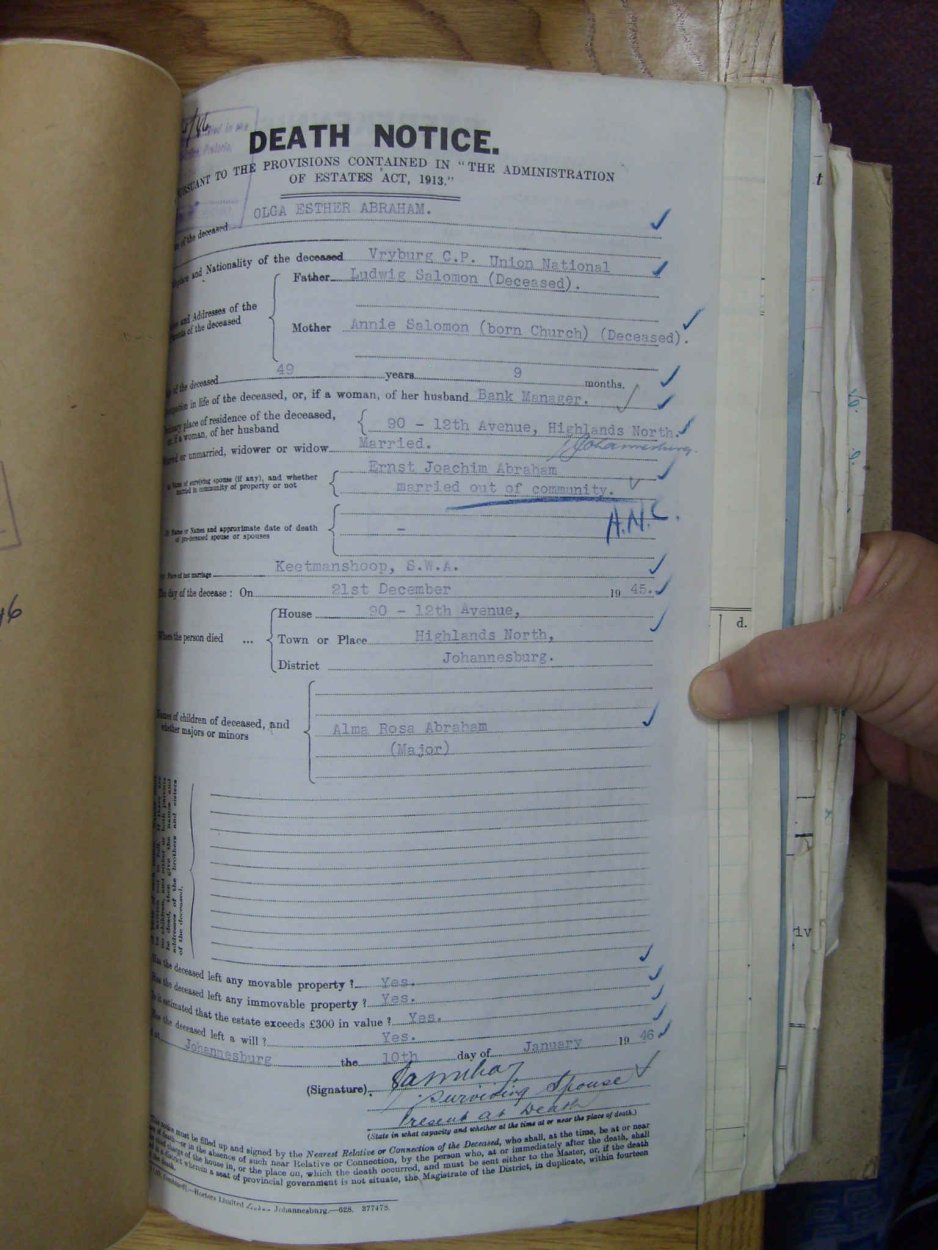 DEATH NOTICE.
TO THE PROVISIONS CONTAINED IN "THE ADMINISTRATION
OF ESTATES ACT, 1913."
of the deceased OLGA ESTHER ABRAHAM.
and Nationality of the deceased Vryburg C.P. Union National
Father Ludwig Salomon (Deceased).
and Addresses of the
of the deceased
Mother Annie Salomon (born Church) (Deceased).
of the deceased 49 years 9 months.
in life of the deceased, or, if a woman, of her husband Bank Manager.
place of residence of the deceased,
if a woman, of her husband 90 - 12th Avenue, Highlands North.
Johannesburg.
or unmarried, widower or widow Married.
Name of surviving spouse (if any), and whether
married in community of property or not
Ernst Joachim Abraham
married out of community.
A.N.C.
Name or Names and approximate date of death
of pre-deceased spouse or spouses -
Place of last marriage Keetmanshoop, S.W.A.
The day of the decease: On 21st December 19 45.
House 90 - 12th Avenue,
Where the person died ... Town or Place Highlands North,
District Johannesburg.
Names of children of deceased, and
whether majors or minors
Alma Rosa Abraham
(Major)
addresses of the brothers and sisters
of the deceased.
Has the deceased left any movable property? Yes.
Has the deceased left any immovable property? Yes.
Is it estimated that the estate exceeds £300 in value? Yes.
Has the deceased left a will? Yes.
at Johannesburg the 10th day of January 19 46
(Signature)
Surviving Spouse
Present at Death
(State in what capacity and whether at the time at or near the place of death.)
This notice must be filled up and signed by the Nearest Relative or Connection of the Deceased, who shall, at the time, be at or near
of death—or in the absence of such near Relative or Connection, by the person who, at or immediately after the death, shall
charge of the house in, or the place on, which the death occurred, and must be sent either to the Master, or, if the death
in a district wherein a seat of provincial government is not situate, the Magistrate of the District, in duplicate, within fourteen
the death.
Horters Limited Johannesburg.—628. 377478.
d.